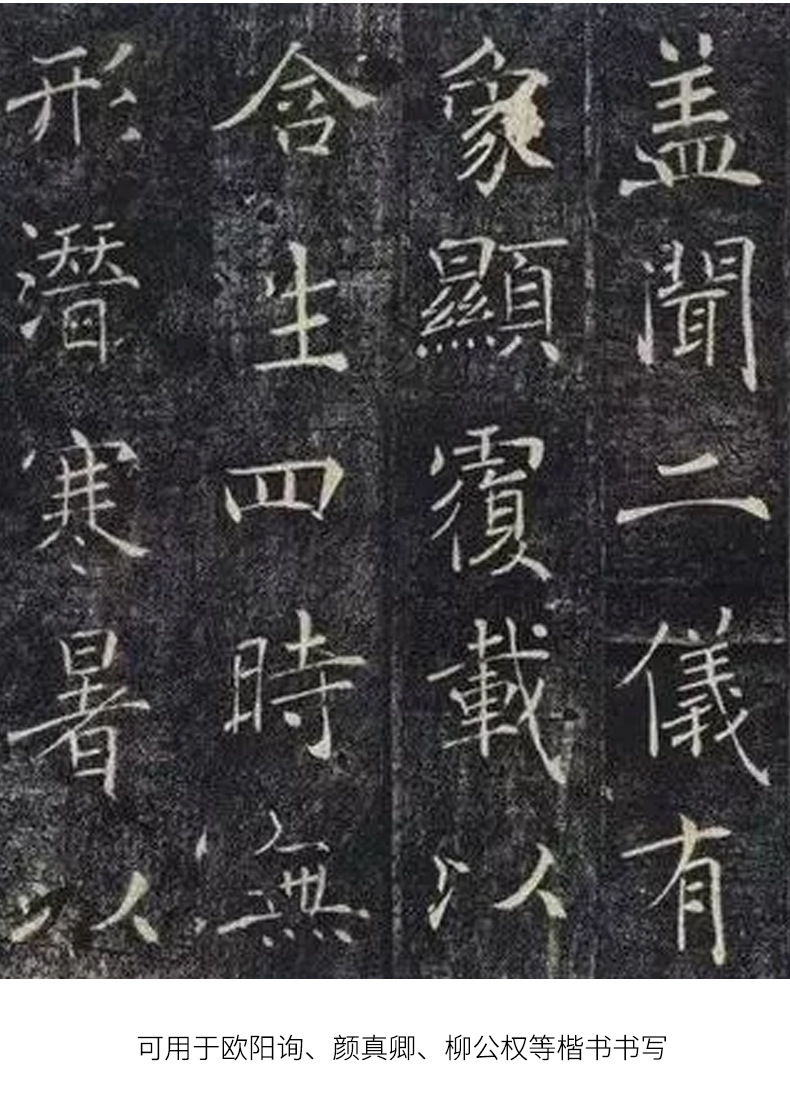 盖聞二儀有
象顯覆載以
含生四時無
形潛寒暑以
可用于欧阳询、颜真卿、柳公权等楷书书写